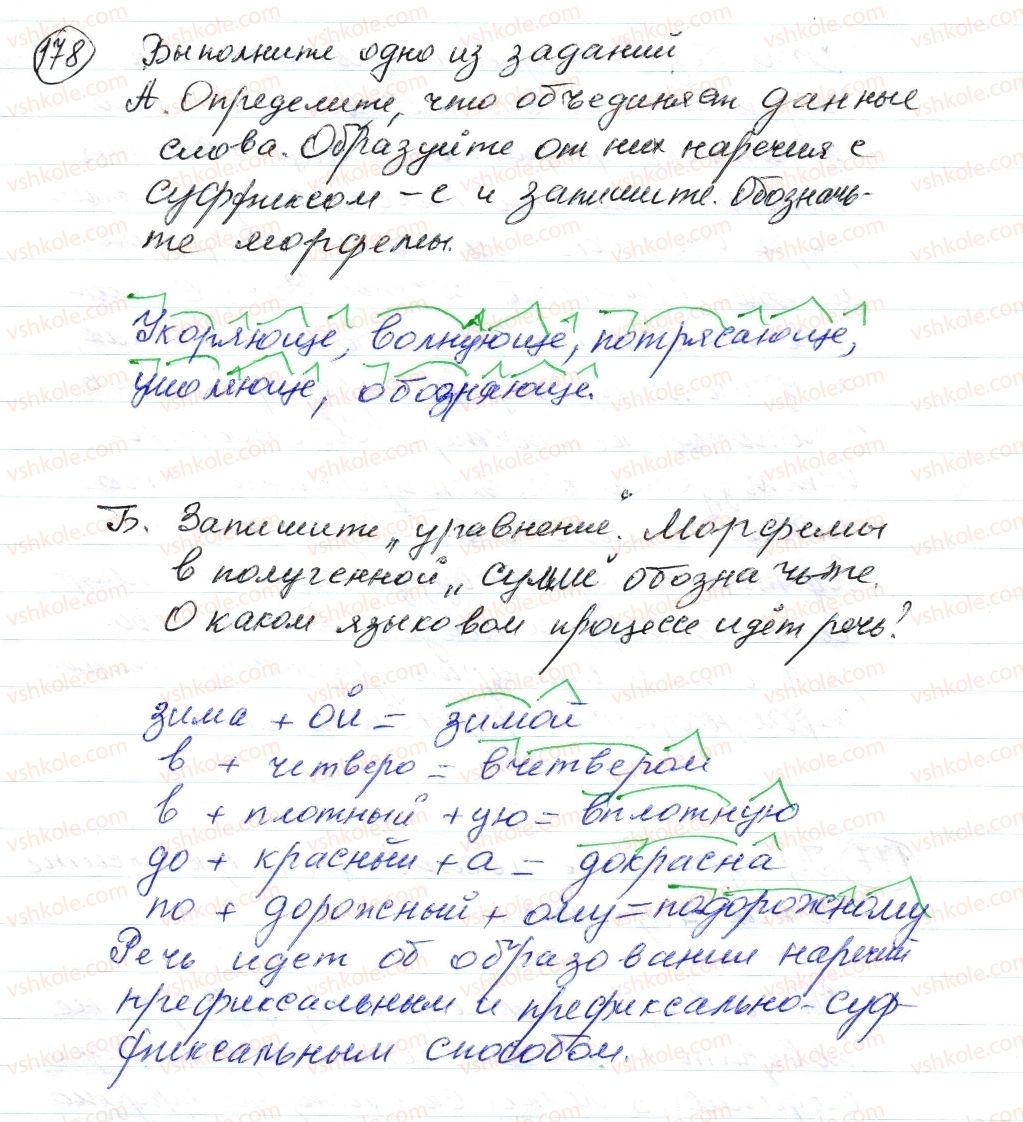 178 Выполните одно из заданий
А. Определите, что объединяет данные
слова. Образуйте от них наречия с
суффиксом -е и запишите. Обозначь-
те морфемы.
Укоряюще, волнующе, потрясающе,
умоляюще, ободряюще.
Б. Запишите „уравнение“. Морфемы
в полученной „сумме“ обозначьте.
О каком языковом процессе идёт речь?
зима + ой = зимой
в + четверо = вчетвером
в + плотный + ую = вплотную
до + красный + а = докрасна
по + дорожный + ому = подорожному
Речь идет об образовании наречий
префиксальным и префиксально-суф-
фиксальным способом.